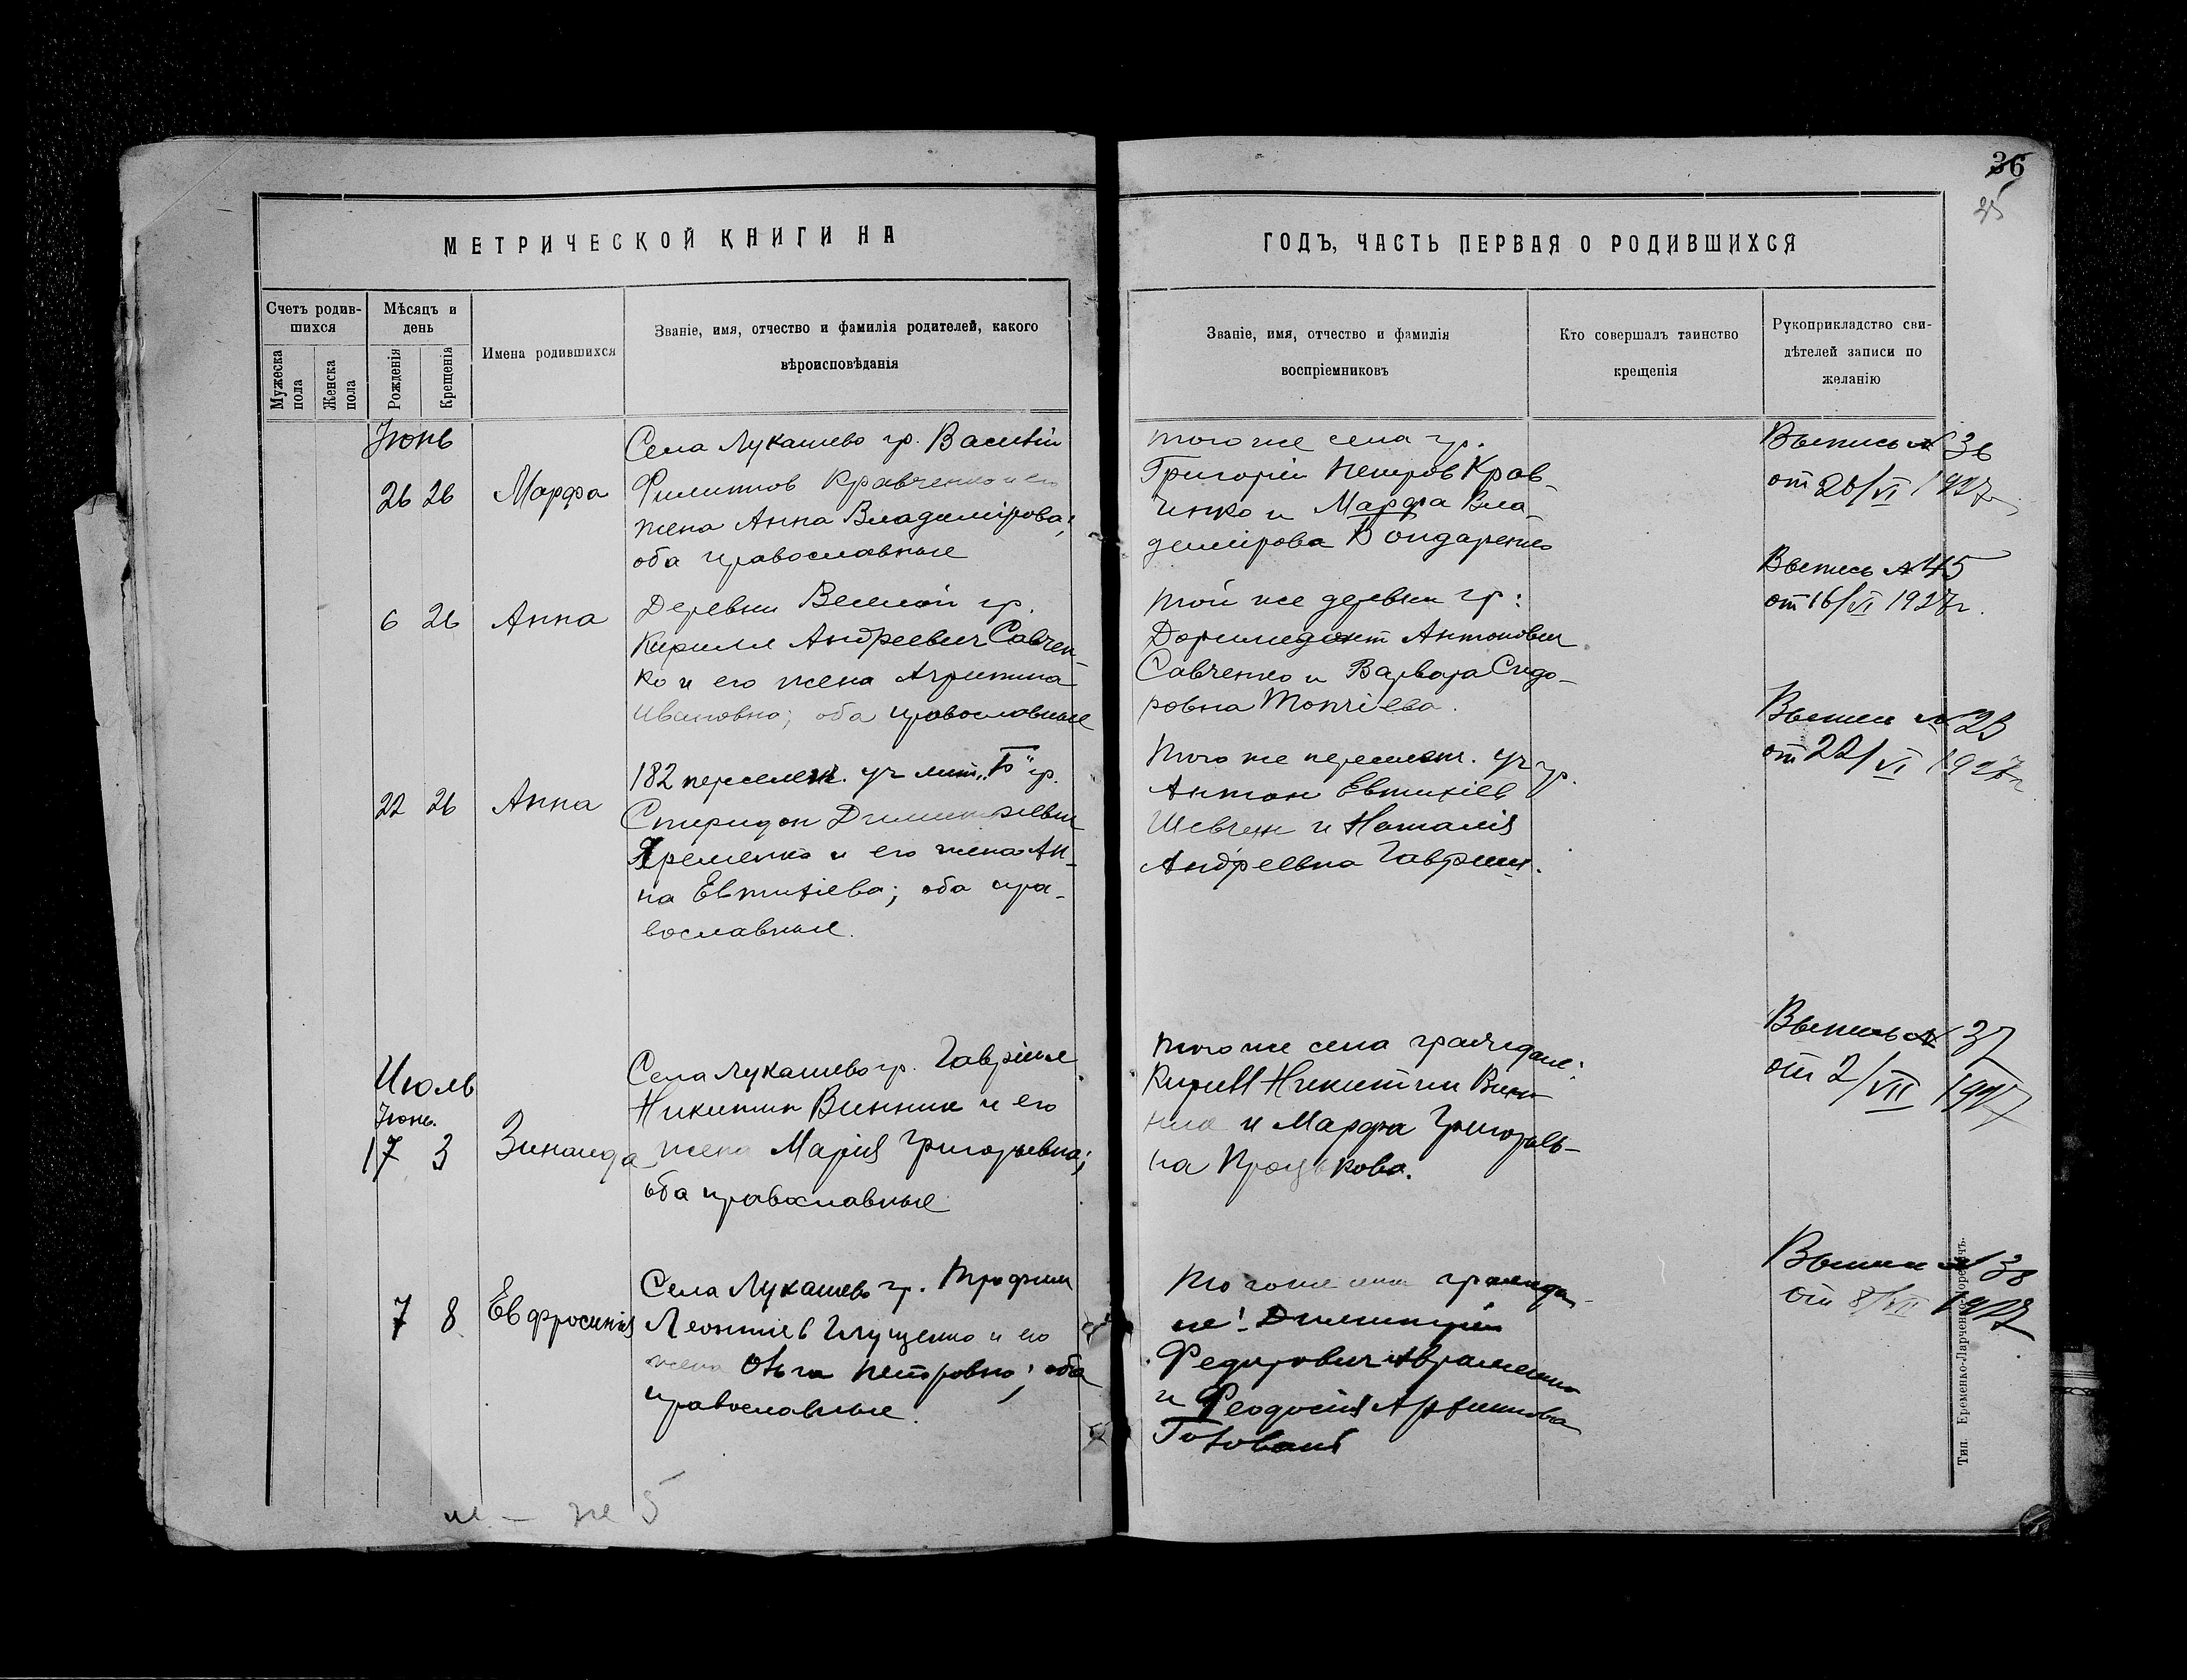 36
25
МЕТРИЧЕСКОЙ КНИГИ НА
Счетъ родив-
шихся
Мужеска
пола
Женска
пола
Мѣсяцъ и
день
Рожденія
Крещенія
Имена родившихся
Званіе, имя, отчество и фамилія родителей, какого
вѣроисповѣданія
Іюнь
26 26 Марфа
Села Лукашево гр. Василій
Филиппов Кравченко и его
жена Анна Владимірова;
оба православные
6 26 Анна
Деревни Веселой гр.
Кирилл Андреевич Савчен-
ко и его жена Агрипина
Ивановна; оба православные
22 26 Анна
182 переселен. уч лит. „Б" гр.
Спиридон Димитріевич
Яременко и его жена Ан-
на Евтихіева; оба пра-
вославные.
Июль
Іюнь
17 3 Зинаида
Села Лукашево гр. Гавріил
Никитин Винник и его
жена Марія Григорьевна;
оба православные
7 8 Евфросинія
Села Лукашево гр. Трофим
Леонтіев Глущенко и его
жена Ольга Петровна; оба
православные.
ГОДЪ, ЧАСТЬ ПЕРВАЯ О РОДИВШИХСЯ
Званіе, имя, отчество и фамилія
воспріемниковъ
Кто совершалъ таинство
крещенія
Рукоприкладство сви-
дѣтелей записи по
желанію
того же села гр.
Григорій Петров Крав-
ченко и Марфа Вла-
димірова Бондаренко
Выпись № 36
от 26/VI 1927
той же деревни гр:
Доримедонт Антонович
Савченко и Варвара Сидо-
ровна Топчіева.
Выпись № 45
от 16/VI 1927г.
того же переселен. уч гр.
Антон Евтихіев
Шевчен и Наталія
Андреевна Гавриш.
Выписи № 23
от 22/VI 1927г
того же села граждане:
Кирилл Никитин Вин-
ник и Марфа Григорьев-
на Процькова.
Выпись № 37
от 2/VII 1927
Того же села гражда-
не: Димитрий
Федорович Авраменко
и Феодосія
Выписи № 38
от 8/VII 1927
Тип. Еременко-Ларченко